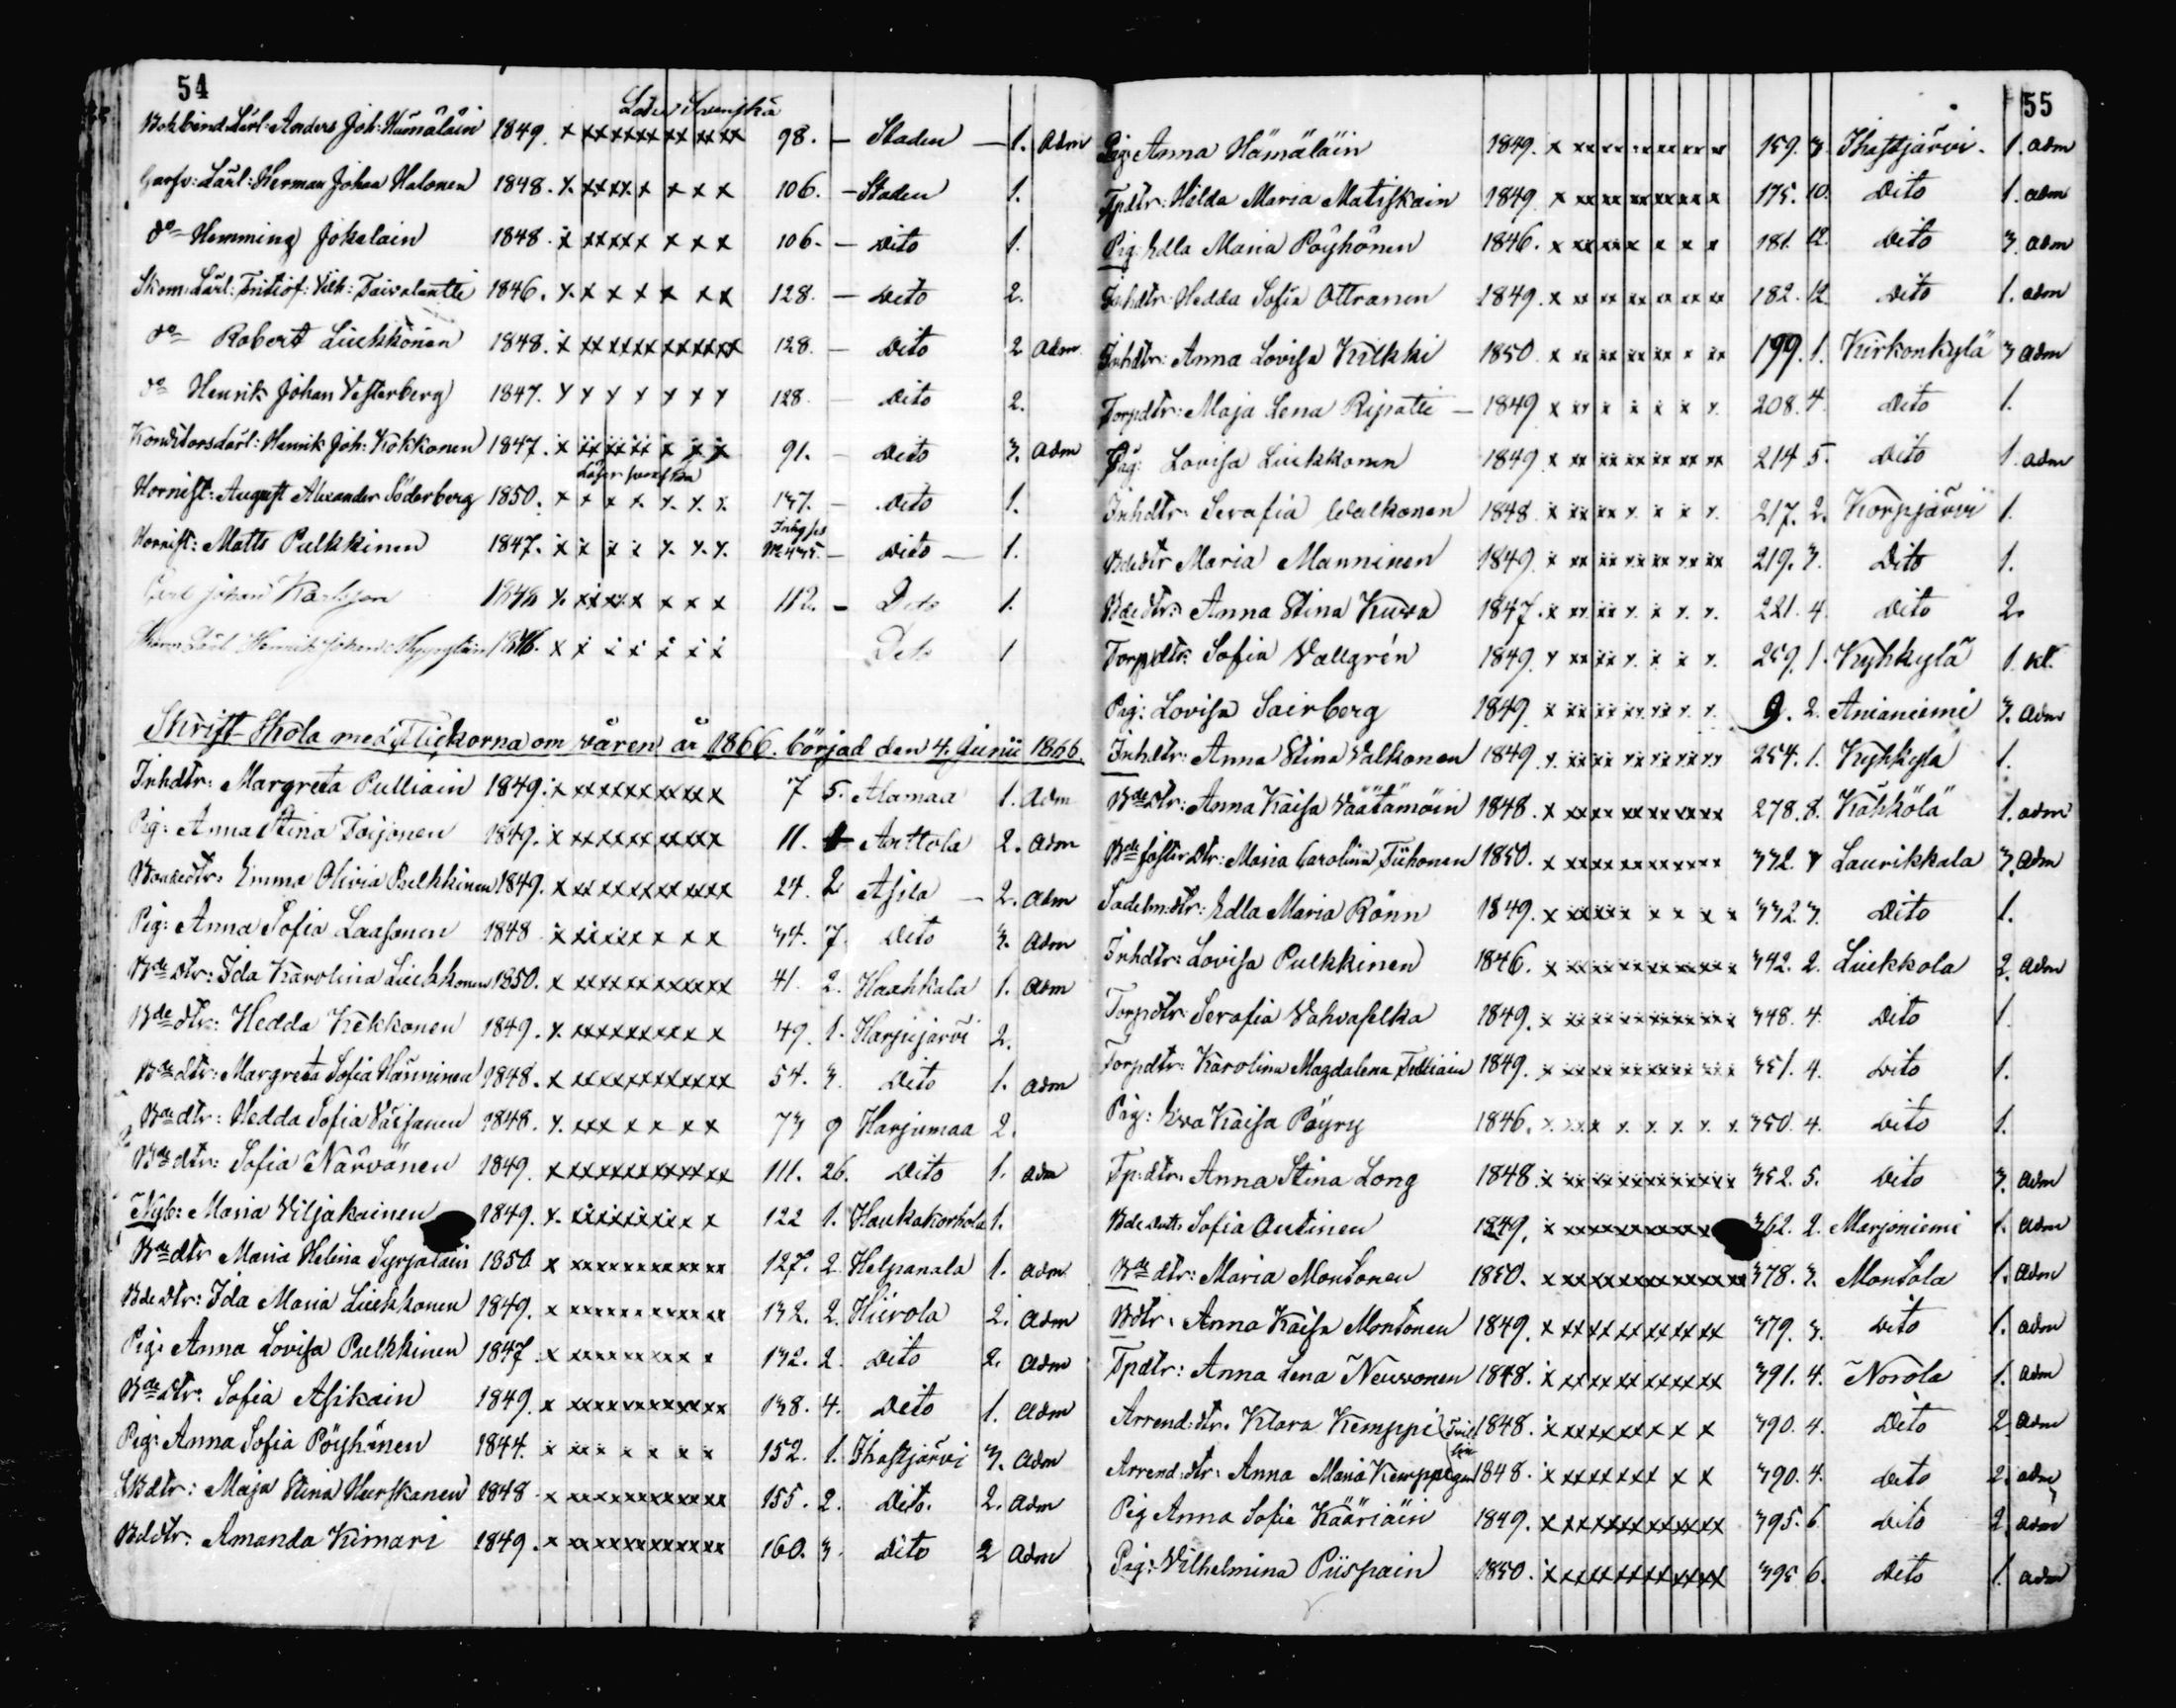 54
Läser Svenska
Bokbind: Lärl: Anders Joh: Hämäläin 1849. x xx xx xx xx xx xx 98. — Staden — 1. adm
Garfv: Lärl: Herman Johan Halonen 1848. x xx xx x x x x 106. — Staden 1.
do Hemming Jokelain 1848. x xx xx x x x x 106. — Dito 1.
Skom: Lärl: Fritiof: Vilh: Taivalantti 1846. x x x x x x x 128. — Dito 2.
do Robert Liukkonen 1848. x xx xx xx xx xx xx 128. — Dito 2 adm
do Henrik Johan Vesterberg 1847. x x x x x x x 128 — Dito 2.
Konditorslärl: Henrik Joh: Kokkonen 1847. x xx xx xx x x x 91. — Dito 3. adm
Läser svenska
Hornist: August Alexander Söderberg 1850. x x x x x x x 137. — Dito 1.
Hornist: Matts Pulkkinen 1847. x x x x x x x — Dito — 1.
Carl Johan Karlsson 1848 x xx xx x x x x 112. — Dito 1.
Henrik Johan 1846. x x x x x x x Dito 1
Skrift Skola med Flickorna om våren år 1866. börjad den 4. Junii 1866.
Inhdtr: Margreta Pulliain 1849. x xx xx xx xx xx x 7 5. Alamaa 1. adm
Pig: Anna Stina Toijonen 1849. x xx xx xx xx xx x 11. 1 Anttola 2. adm
Bondedtr: Emma Olivia Pulkkinen 1849. x xx xx xx xx xx xx 24. 2 Asila — 2. adm
Pig: Anna Sofia Laasonen 1848 x xx xx x x x x 34. 7. Dito 3. adm
Bde dtr: Ida Karolina Liukkonen 1850. x xx xx xx xx xx xx 41. 2. Haahkala 1. adm
Bde dtr: Hedda Kekkonen 1849. x xx xx xx xx x x 49. 1. Harjujärvi 2.
Bde dtr: Margreta Sofia Hänninen 1848. x xx xx xx xx xx xx 54. 3. Dito 1. adm
Bde dtr: Hedda Sofia Väisänen 1848. x xx x x x x x 73 9 Harjumaa 2.
Bde dtr: Sofia Närvänen 1849. x xx xx xx xx xx xx 111. 26. Dito 1. adm
Nyb: Maria Viljakainen 1849. x xx xx xx xx x x 122 1. Haukakorhola 1.
Bde dtr Maria Helena Syrjäläin 1850 x xx xx xx xx xx xx 127. 2. Helpanala 1. adm
Bde dtr: Ida Maria Liukkonen 1849. x xx xx xx xx xx xx 132. 2. Hiirola 2. adm
Pig: Anna Lovisa Pulkkinen 1847. x xx xx xx xx xx x 132. 2. Dito 2. adm
Bde dtr: Sofia Asikain 1849. x xx xx xx xx xx xx 138. 4. Dito 1. adm
Pig: Anna Sofia Pöyhönen 1844. x xx x x x x x 152. 1. Ihastjärvi 3. adm
Bdtr: Maja Stina Hurskanen 1848 x xx xx xx xx xx xx 155. 2. Dito. 2. adm
Bdedtr: Amanda Kinnari 1849. x xx xx xx xx xx xx 160. 3. Dito 2 adm
55
Pig: Anna Hämäläin 1849. x xx xx xx xx xx xx 159. 3. Ihastjärvi. 1. adm
Tpdtr: Hilda Maria Matiskain 1849 x xx xx xx xx xx x 175. 10. Dito 1. adm
Pig: Edla Maria Pöyhönen 1846. x xx xx x x x x 181. 12. Dito 3. adm
Inhdtr: Hedda Sofia Ottranen 1849. x xx xx xx xx xx xx 182. 12. Dito 1. adm
Inhdtr: Anna Lovisa Kilkki 1850 x xx xx xx xx x xx 199. 1. Kirkonkylä 3 adm
Torpdtr: Maja Lena Ripatti — 1849 x xx x x x x x 208. 4. Dito 1.
Pig: Lovisa Liukkonen 1849 x xx xx xx xx xx xx 214 5. Dito 1 adm
Inhdtr: Serafia Walkonen 1848 x xx xx x x x x 217. 2. Korpjärvi 1.
Bdedtr Maria Manninen 1849. x xx xx xx xx xx xx 219. 3. Dito 1.
Bde dtr: Anna Stina Kurra 1847. x xx xx x x x x 221. 4. Dito 2.
Torpdtr: Sofia Vallgrén 1849. x xx xx x x x x 259. 1. Kyhkylä 1. kl.
Pig: Lovisa Sairberg 1849. x xx xx xx xx x x 9. 2. Anianiemi 3. adm
Inhdtr: Anna Stina Valkonen 1849. x xx xx xx xx xx xx 254. 1. Kyhkylä 1.
Bde dtr: Anna Kaisa Väätämöin 1848. x xx xx xx xx xx xx 278. 8. Kähkölä 1. adm
Bde foster dtr: Maria Carolina Tiihonen 1850. x xx xx xx xx xx xx 332. 3 Laurikkala 3. adm
Sadelm: dtr: Edla Maria Rönn 1849. x xx xx x x x x 332 3. Dito 1.
Inhdtr: Lovisa Pulkkinen 1846. x xx xx xx xx xx xx 342. 2. Liukkola 2. adm
Torpdtr: Serafia Vahvaselka 1849. x xx xx xx xx xx xx 348. 4. Dito 1.
Torpdtr: Karolina Magdalena Tulliain 1849. x xx xx xx xx xx xx 351. 4. Dito 1.
Pig: Eva Kaisa Pöyry 1846. x xx x x x x x 350. 4. Dito 1.
Tp: dtr: Anna Stina Long 1848 x xx xx xx xx xx xx 352. 5. Dito 3. adm
Bde dott: Sofia Autinen 1849. x xx xx xx xx xx 362. 2. Marjoniemi 1. adm
Bde dtr: Maria Montonen 1850. x xx xx xx xx xx xx 378. 3. Montola 1. adm
Bdtr: Anna Kaisa Montonen 1849. x xx xx xx xx xx xx 379. 3. Dito 1. adm
Tpdtr: Anna Lena Neuvonen 1848. x xx xx xx xx xx xx 391. 4. Norola 1. adm
Arrend: dtr: Klara Kemppi 1848. x xx xx xx x x x 390. 4. Dito 2. adm
Arrend: dtr: Anna Maria Kemppi 1848. x xx xx xx x x x 390. 4. Dito 2. adm
Pig Anna Sofia Kääriäin 1849. x xx xx xx xx xx xx 395. 6 Dito 2. adm
Pig: Vilhelmina Piispain 1850. x xx xx xx xx xx xx 395 6. Dito 1. adm